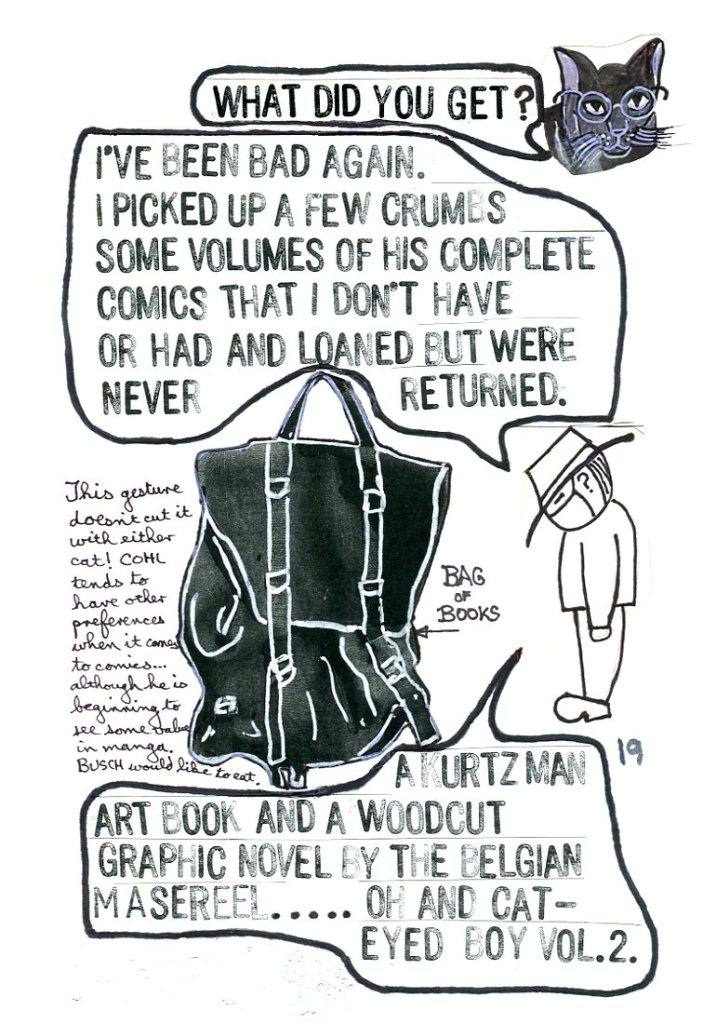 WHAT DID YOU GET?
I'VE BEEN BAD AGAIN.
I PICKED UP A FEW CRUMBS
SOME VOLUMES OF HIS COMPLETE
COMICS THAT I DON'T HAVE
OR HAD AND LOANED BUT WERE
NEVER RETURNED.
This gesture
doesn't cut it
with either
cat! COHL
tends to
have other
preferences
when it comes
to comics...
although he is
beginning to
see some value
in manga.
BUSCH would like to eat.
BAG
OF
BOOKS
?
19
A KURTZMAN
ART BOOK AND A WOODCUT
GRAPHIC NOVEL BY THE BELGIAN
MASEREEL..... OH AND CAT-
EYED BOY VOL.2.